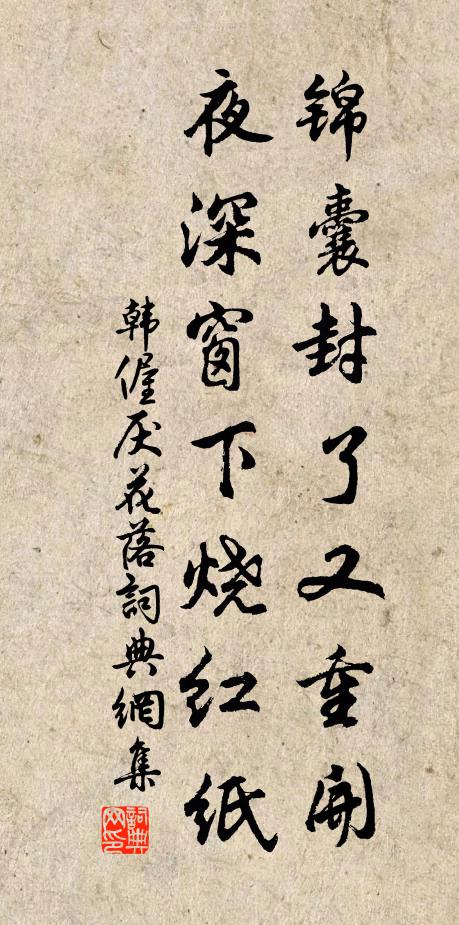 锦囊封了又重开
夜深窗下烧红纸
韩偓厌花落詞典網集
詞典网印